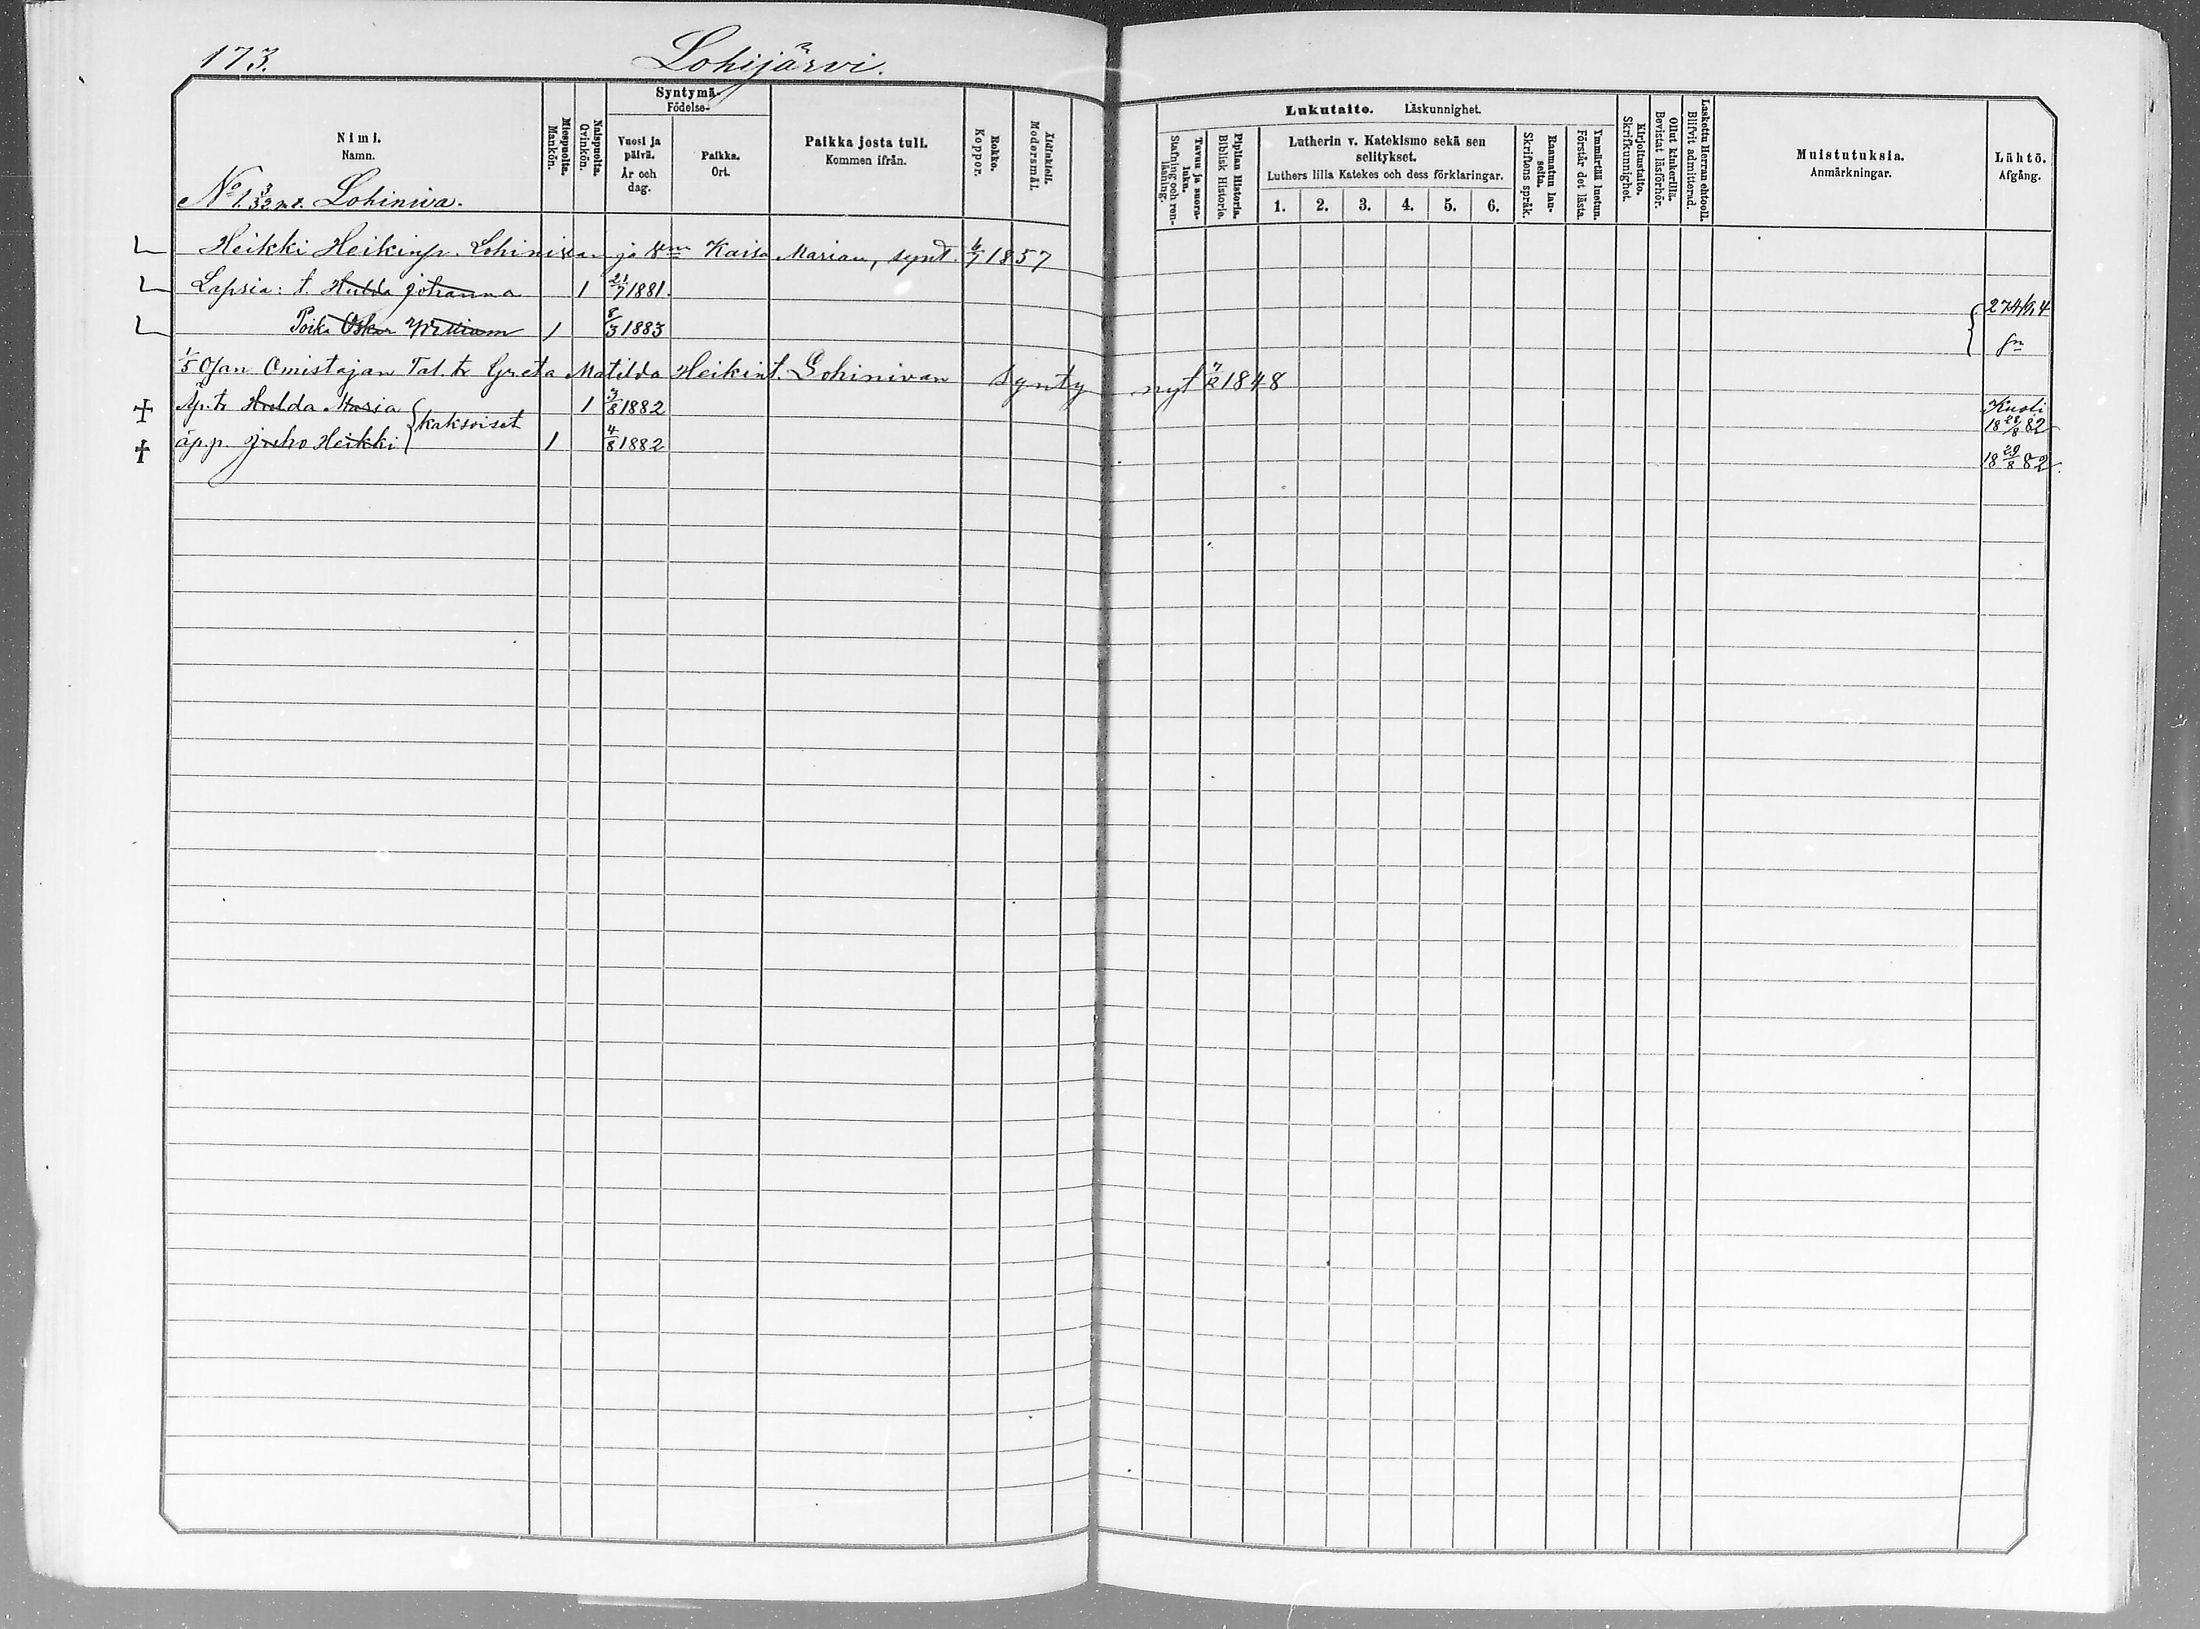 173.
Lohijärvi.
Nimi.
Namn.
Miespuolia.
Mankön.
Naispuolia.
Qvinkön.
Syntymä-
Födelse-
Vuosi ja päivä.
År och dag.
Paikka.
Ort.
Paikka josta tuli.
Kommen ifrån.
Rokko.
Koppor.
Äidinkieli.
Modersmål.
Lukutaito. Läskunnighet.
Tavuu ja suora-luku.
Stafning och ren-läsning.
Piplian Historia.
Biblisk Historie.
Lutherin v. Katekismo sekä sen selitykset.
Luthers lilla Katekes och dess förklaringar.
1. 2. 3. 4. 5. 6.
Raamatun lau-seita.
Skriftens språk.
Ymmärtää luetun.
Förstår det lästa.
Kirjoitustaito.
Skrifkunnighet.
Ollut kinkerillä.
Bevistat läsförhör.
Laskettu Herran ehtooll.
Blifvit admitterad.
Muistutuksia.
Anmärkningar.
Lähtö.
Afgång.
No 1. 3/32 mt. Lohiniva.
Heikki Heikinp. Lohinivan ja Vm Kaisa Marian, synt. 6/7 1857
Lapsia: t. Hulda Johanna 1 21/7 1881.
Poika Oskar William 1 8/3 1883
1/5 Osan Omistajan Tal. tr Greta Matilda Heikint. Lohinivan synty nyt 7/12 1848
Äp. tr Hulda Maria kaksoiset 1 3/8 1882 Kuoli 18 28/8 82
äp. p. Juho Heikki 1 4/8 1882 18 29/8 82.